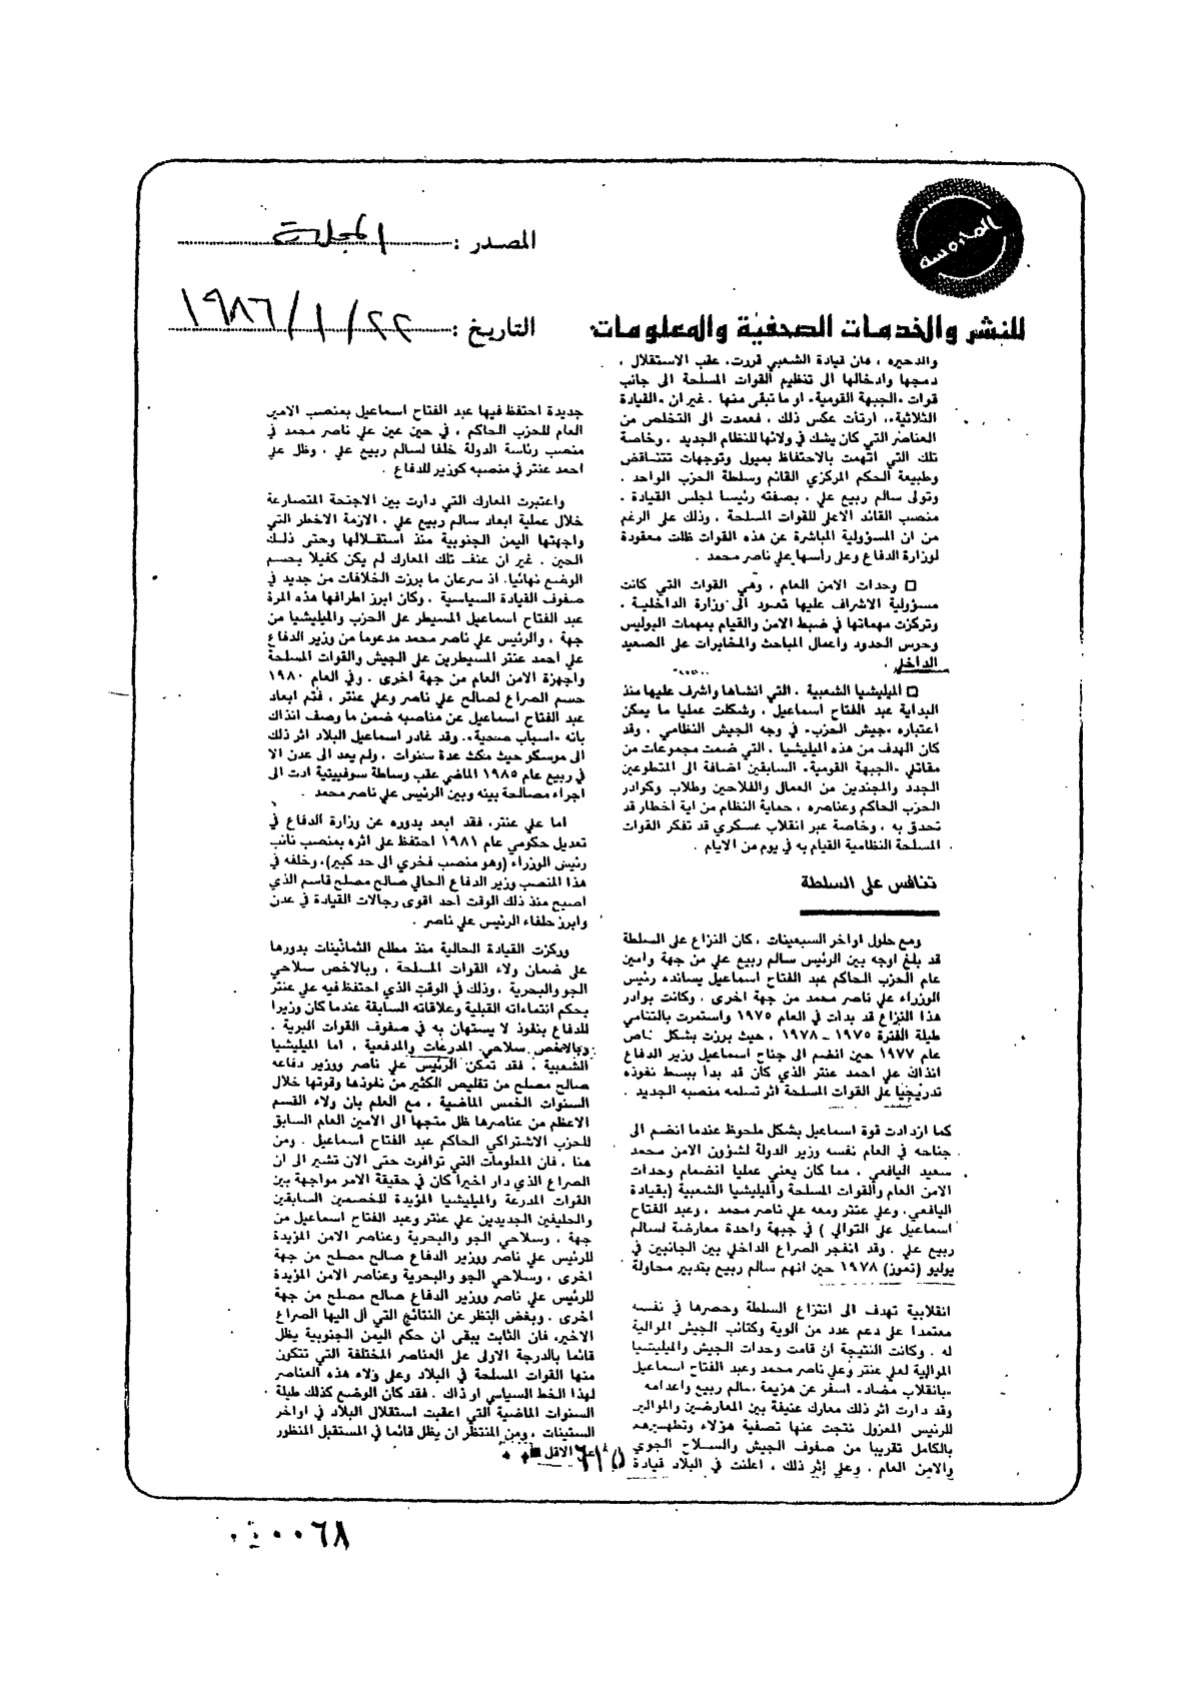 المصدر : المجلة
التاريخ : ٢٢ / ١ / ١٩٨٦
المحروسة
للنشر والخدمات الصحفية والمعلومات
والذخيرة ، فان قيادة الشعبي قررت، عقب الاستقلال ،
دمجها وادخالها الى تنظيم القوات المسلحة الى جانب
قوات «الجبهة القومية» او ما تبقى منها . غير ان «القيادة
الثلاثية»، ارتأت عكس ذلك ، فعمدت الى التخلص من
العناصر التي كان يشك في ولائها للنظام الجديد ، وخاصة
تلك التي اتهمت بالاحتفاظ بميول وتوجهات تتناقض
وطبيعة الحكم المركزي القائم وسلطة الحزب الواحد .
وتولى سالم ربيع علي ، بصفته رئيسا لمجلس القيادة ،
منصب القائد الاعلى للقوات المسلحة ، وذلك على الرغم
من ان المسؤولية المباشرة عن هذه القوات ظلت معقودة
لوزارة الدفاع وعلى رأسها علي ناصر محمد .
□ وحدات الامن العام ، وهي القوات التي كانت
مسؤولية الاشراف عليها تعود الى وزارة الداخلية .
وتركزت مهماتها في ضبط الامن والقيام بمهمات البوليس
وحرس الحدود واعمال المباحث والمخابرات على الصعيد
الداخلي .
□ الميليشيا الشعبية ، التي انشاها واشرف عليها منذ
البداية عبد الفتاح اسماعيل ، وشكلت عمليا ما يمكن
اعتباره «جيش الحزب» في وجه الجيش النظامي . وقد
كان الهدف من هذه الميليشيا ، التي ضمت مجموعات من
مقاتلي «الجبهة القومية» السابقين اضافة الى المتطوعين
الجدد والمجندين من العمال والفلاحين وطلاب وكوادر
الحزب الحاكم وعناصره ، حماية النظام من اية اخطار قد
تحدق به ، وخاصة عبر انقلاب عسكري قد تفكر القوات
المسلحة النظامية القيام به في يوم من الايام .
تنافس على السلطة
ومع حلول اواخر السبعينات ، كان النزاع على السلطة
قد بلغ اوجه بين الرئيس سالم ربيع علي من جهة وامين
عام الحزب الحاكم عبد الفتاح اسماعيل يسانده رئيس
الوزراء علي ناصر محمد من جهة اخرى . وكانت بوادر
هذا النزاع قد بدات في العام ١٩٧٥ واستمرت بالتنامي
طيلة الفترة ١٩٧٥ – ١٩٧٨ ، حيث برزت بشكل خاص
عام ١٩٧٧ حين انضم الى جناح اسماعيل وزير الدفاع
انذاك علي احمد عنتر الذي كان قد بدأ ببسط نفوذه
تدريجيا على القوات المسلحة اثر تسلمه منصبه الجديد .
كما ازدادت قوة اسماعيل بشكل ملحوظ عندما انضم الى
جناحه في العام نفسه وزير الدولة لشؤون الامن محمد
سعيد اليافعي ، مما كان يعني عمليا انضمام وحدات
الامن العام والقوات المسلحة والميليشيا الشعبية (بقيادة
اليافعي، وعلي عنتر ومعه علي ناصر محمد ، وعبد الفتاح
اسماعيل على التوالي ) في جبهة واحدة معارضة لسالم
ربيع علي . وقد انفجر الصراع الداخلي بين الجانبين في
يوليو (تموز) ١٩٧٨ حين اتهم سالم ربيع بتدبير محاولة
انقلابية تهدف الى انتزاع السلطة وحصرها في نفسه
معتمدا على دعم عدد من الوية وكتائب الجيش الموالية
له . وكانت النتيجة ان قامت وحدات الجيش والميليشيا
الموالية لعلي عنتر وعلي ناصر محمد وعبد الفتاح اسماعيل
«بانقلاب مضاد» اسفر عن هزيمة سالم ربيع واعدامه
وقد دارت اثر ذلك معارك عنيفة بين المعارضين والموالين
للرئيس المعزول نتجت عنها تصفية هؤلاء وتطهيرهم
بالكامل تقريبا من صفوف الجيش والسلاح الجوي
والامن العام . وعلى إثر ذلك ، اعلنت في البلاد قيادة
جديدة احتفظ فيها عبد الفتاح اسماعيل بمنصب الامين
العام للحزب الحاكم ، في حين عين علي ناصر محمد في
منصب رئاسة الدولة خلفا لسالم ربيع علي . وظل علي
احمد عنتر في منصبه كوزير للدفاع .
واعتبرت المعارك التي دارت بين الاجنحة المتصارعة
خلال عملية ابعاد سالم ربيع علي ، الازمة الاخطر التي
واجهتها اليمن الجنوبية منذ استقلالها وحتى ذلك
الحين . غير ان عنف تلك المعارك لم يكن كفيلا بحسم
الوضع نهائيا، اذ سرعان ما برزت الخلافات من جديد في
صفوف القيادة السياسية . وكان ابرز اطرافها هذه المرة
عبد الفتاح اسماعيل المسيطر على الحزب والميليشيا من
جهة ، والرئيس علي ناصر محمد مدعوما من وزير الدفاع
علي أحمد عنتر المسيطرين على الجيش والقوات المسلحة
واجهزة الامن العام من جهة اخرى . وفي العام ١٩٨٠
حسم الصراع لصالح علي ناصر وعلي عنتر ، فتم ابعاد
عبد الفتاح اسماعيل عن مناصبه ضمن ما وصف انذاك
بانه «اسباب صحية». وقد غادر اسماعيل البلاد اثر ذلك
الى موسكو حيث مكث عدة سنوات ، ولم يعد الى عدن الا
في ربيع عام ١٩٨٥ الماضي عقب وساطة سوفييتية ادت الى
اجراء مصالحة بينه وبين الرئيس علي ناصر محمد .
اما علي عنتر، فقد ابعد بدوره عن وزارة الدفاع في
تعديل حكومي عام ١٩٨١ احتفظ على اثره بمنصب نائب
رئيس الوزراء (وهو منصب فخري الى حد كبير)، وخلفه في
هذا المنصب وزير الدفاع الحالي صالح مصلح قاسم الذي
اصبح منذ ذلك الوقت أحد اقوى رجالات القيادة في عدن
وابرز حلفاء الرئيس علي ناصر .
وركزت القيادة الحالية منذ مطلع الثمانينات بدورها
على ضمان ولاء القوات المسلحة ، وبالاخص سلاحي
الجو والبحرية ، وذلك في الوقت الذي احتفظ فيه علي عنتر
بحكم انتماءاته القبلية وعلاقاته السابقة عندما كان وزيرا
للدفاع بنفوذ لا يستهان به في صفوف القوات البرية ،
وبالاخص سلاحي المدرعات والمدفعية ، اما الميليشيا
الشعبية ، فقد تمكن الرئيس علي ناصر ووزير دفاعه
صالح مصلح من تقليص الكثير من نفوذها وقوتها خلال
السنوات الخمس الماضية ، مع العلم بان ولاء القسم
الاعظم من عناصرها ظل متجها الى الامين العام السابق
للحزب الاشتراكي الحاكم عبد الفتاح اسماعيل . ومن
هنا ، فان المعلومات التي توافرت حتى الان تشير الى ان
الصراع الذي دار اخيرا كان في حقيقة الامر مواجهة بين
القوات المدرعة والميليشيا المؤيدة للخصمين السابقين
والحليفين الجديدين علي عنتر وعبد الفتاح اسماعيل من
جهة ، وسلاحي الجو والبحرية وعناصر الامن المؤيدة
للرئيس علي ناصر ووزير الدفاع صالح مصلح من جهة
اخرى ، وسلاحي الجو والبحرية وعناصر الامن المؤيدة
للرئيس علي ناصر ووزير الدفاع صالح مصلح من جهة
اخرى . وبغض النظر عن النتائج التي آل اليها الصراع
الاخير، فان الثابت يبقى ان حكم اليمن الجنوبية يظل
قائما بالدرجة الاولى على العناصر المختلفة التي تتكون
منها القوات المسلحة في البلاد وعلى ولاء هذه العناصر
لهذا الخط السياسي او ذاك . فقد كان الوضع كذلك طيلة
السنوات الماضية التي اعقبت استقلال البلاد في اواخر
الستينات ، ومن المنتظر ان يظل قائما في المستقبل المنظور
على الاقل ■